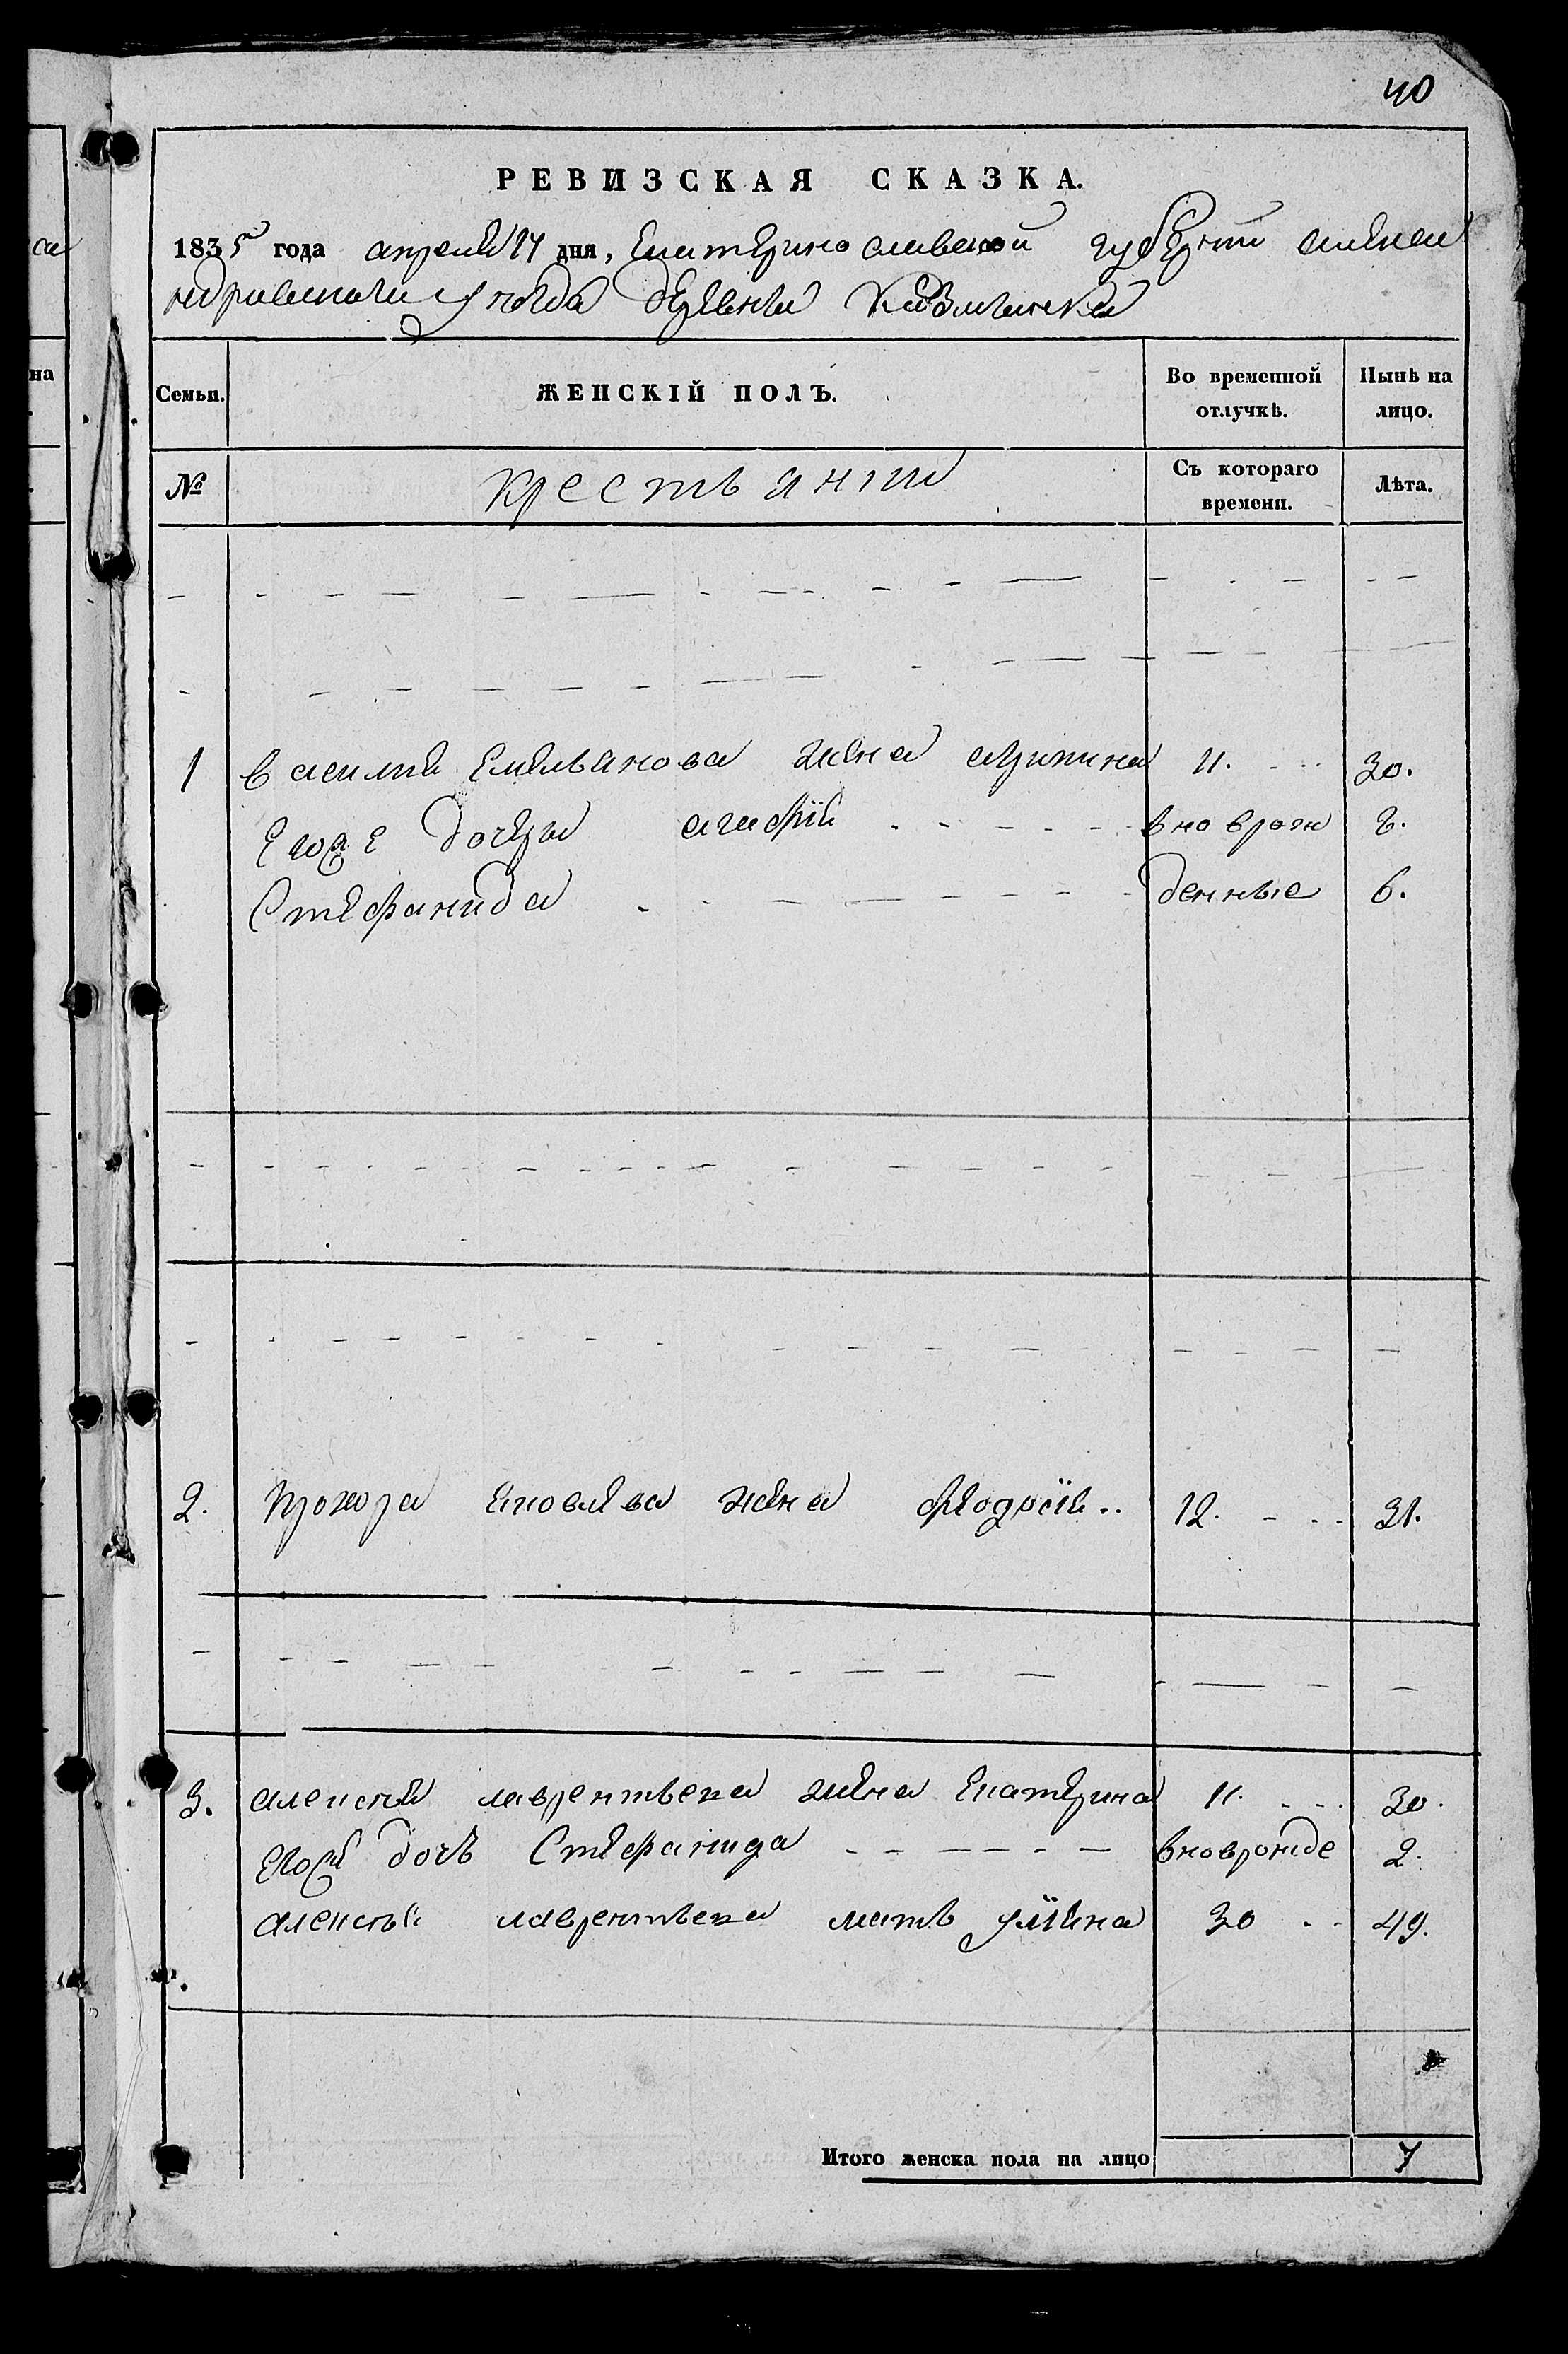 40
РЕВИЗСКАЯ СКАЗКА.
1835 года апреля 17 дня, Екатеринославской губернии алексан
ндровскаго уезда деревни
Семьи. ЖЕНСКІЙ ПОЛЪ. Во временной отлучкѣ. Нынѣ на лицо.
№ крестьянии Съ котораго времени. Лѣта.
1 василия Емельянова жена агрипина 11. 30.
Егоже дочери агафiя вноврож 8.
Стефанида денные 6.
2. прокора яковлева жена феодосiя 12. 31.
3. алексея лаврентьева жена Екатерина 11. 30.
Егоже дочь Стефанида вноврожде 2.
алексея лаврентьева мать улiяна 30 49.
Итого женска пола на лицо 7
са
на